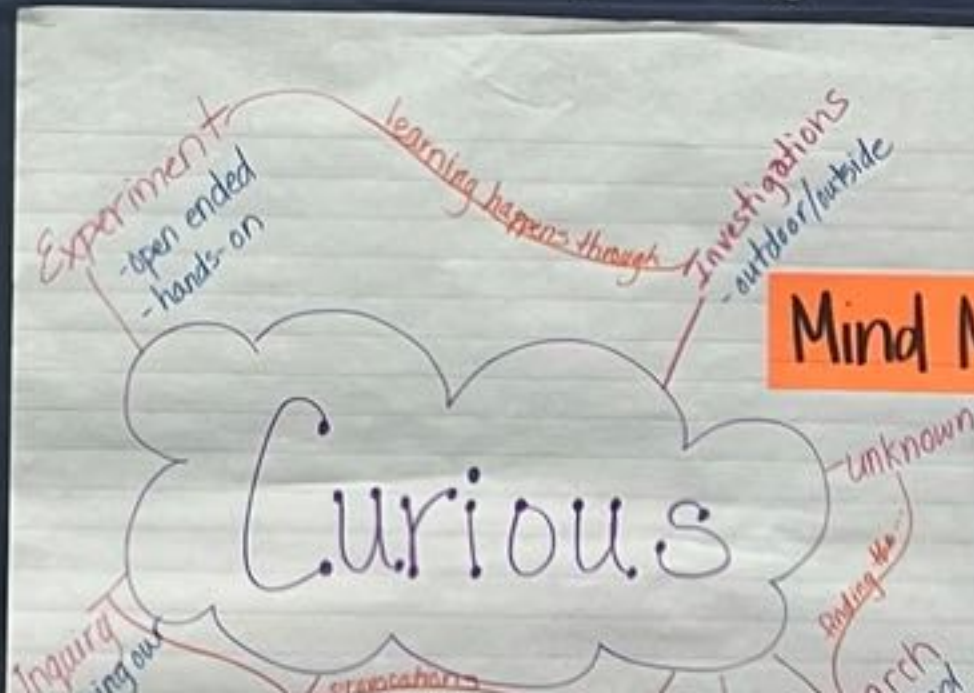 Experiment
-open ended
-hands-on
learning happens through
Investigations
-outdoor/outside
Mind
Curious
unknown
finding the...
Inquiry
our
provocations